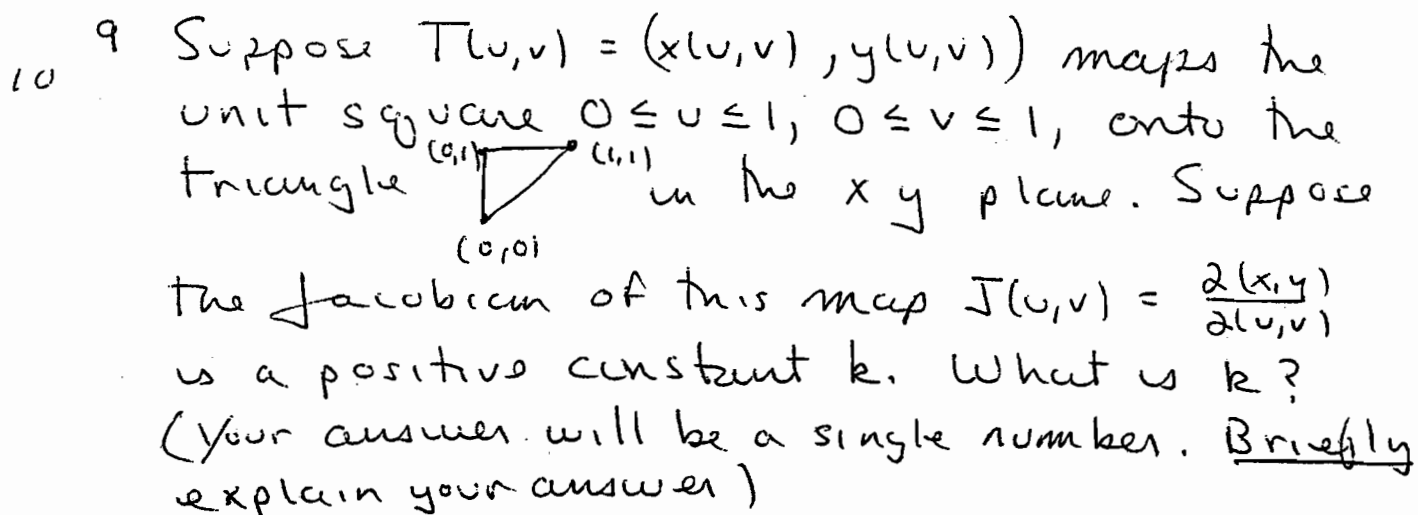 9 Suppose T(u,v) = (x(u,v), y(u,v)) maps the
10
unit square 0 ≤ u ≤ 1, 0 ≤ v ≤ 1, onto the
(0,1) (1,1)
triangle in the xy plane. Suppose
(0,0)
the Jacobian of this map J(u,v) = ∂(x,y)/∂(u,v)
is a positive constant k. What is k?
(Your answer will be a single number. Briefly
explain your answer)